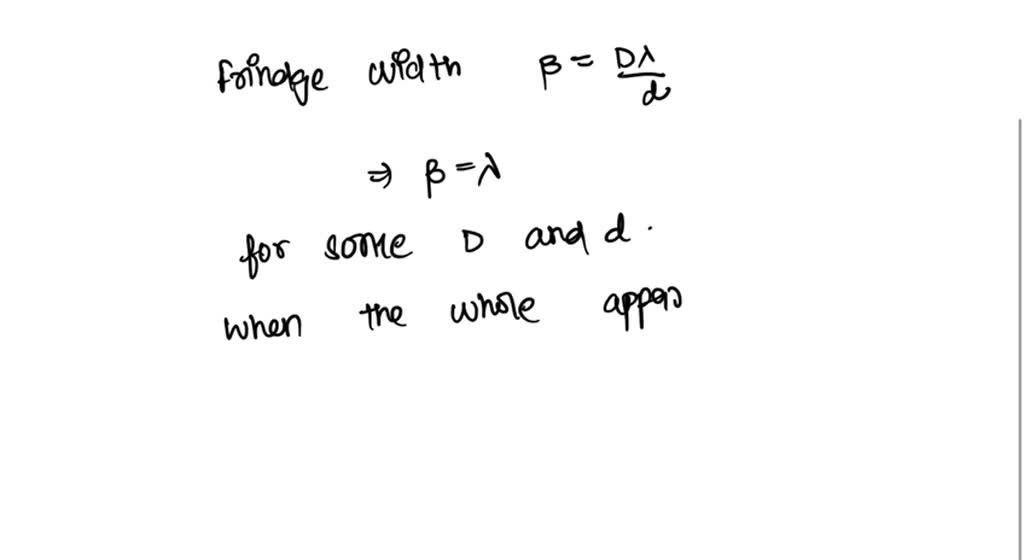 Frindge width β = Dλ/d
⇒ β = λ
for some D and d.
when the whole appas